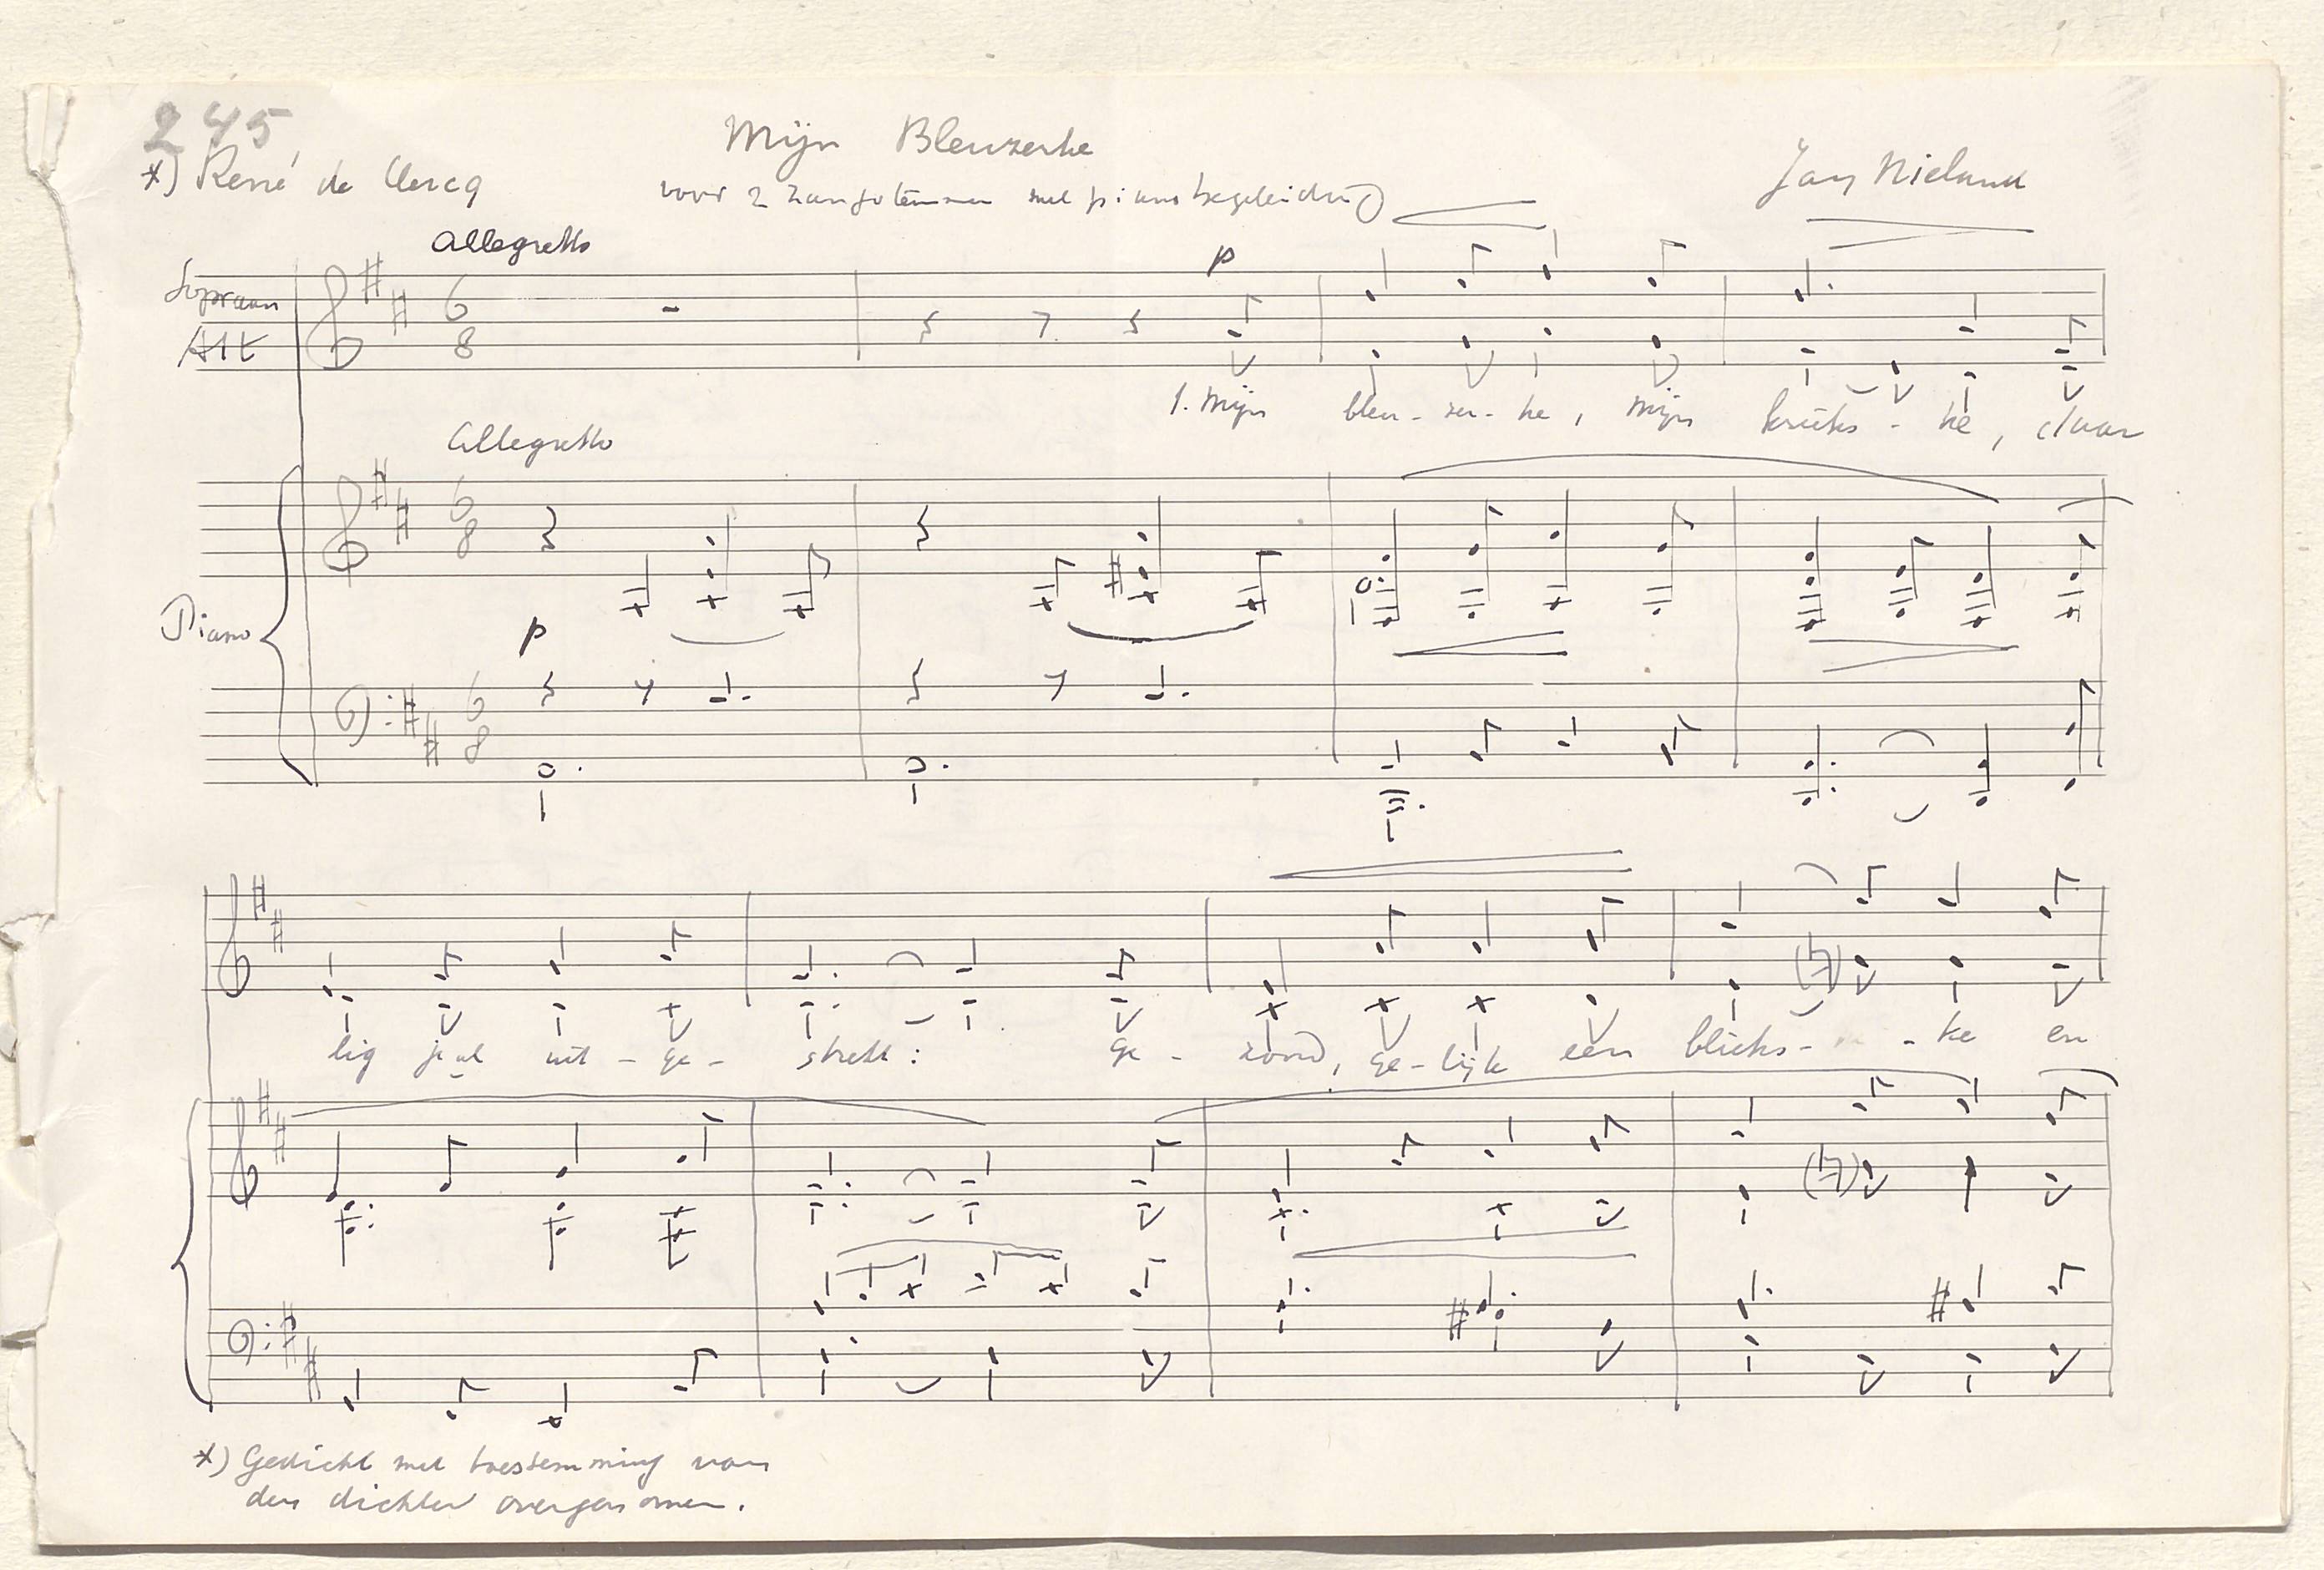 245
Mijn Bleuzerke
*) René de Clercq
voor 2 zangstemmen met pianobegeleiding
Jan Nieland
Allegretto
p
Sopraan
Alt
6
8
1. Mijn bleu-zer-ke, mijn krieks-ke, daar
Allegretto
6
8
Piano
p
6
8
lig je al uit-ge-strekt: Ge-zond, ge-lijk een blieks-ke en
*) Gedicht met toestemming van
den dichter overgenomen.